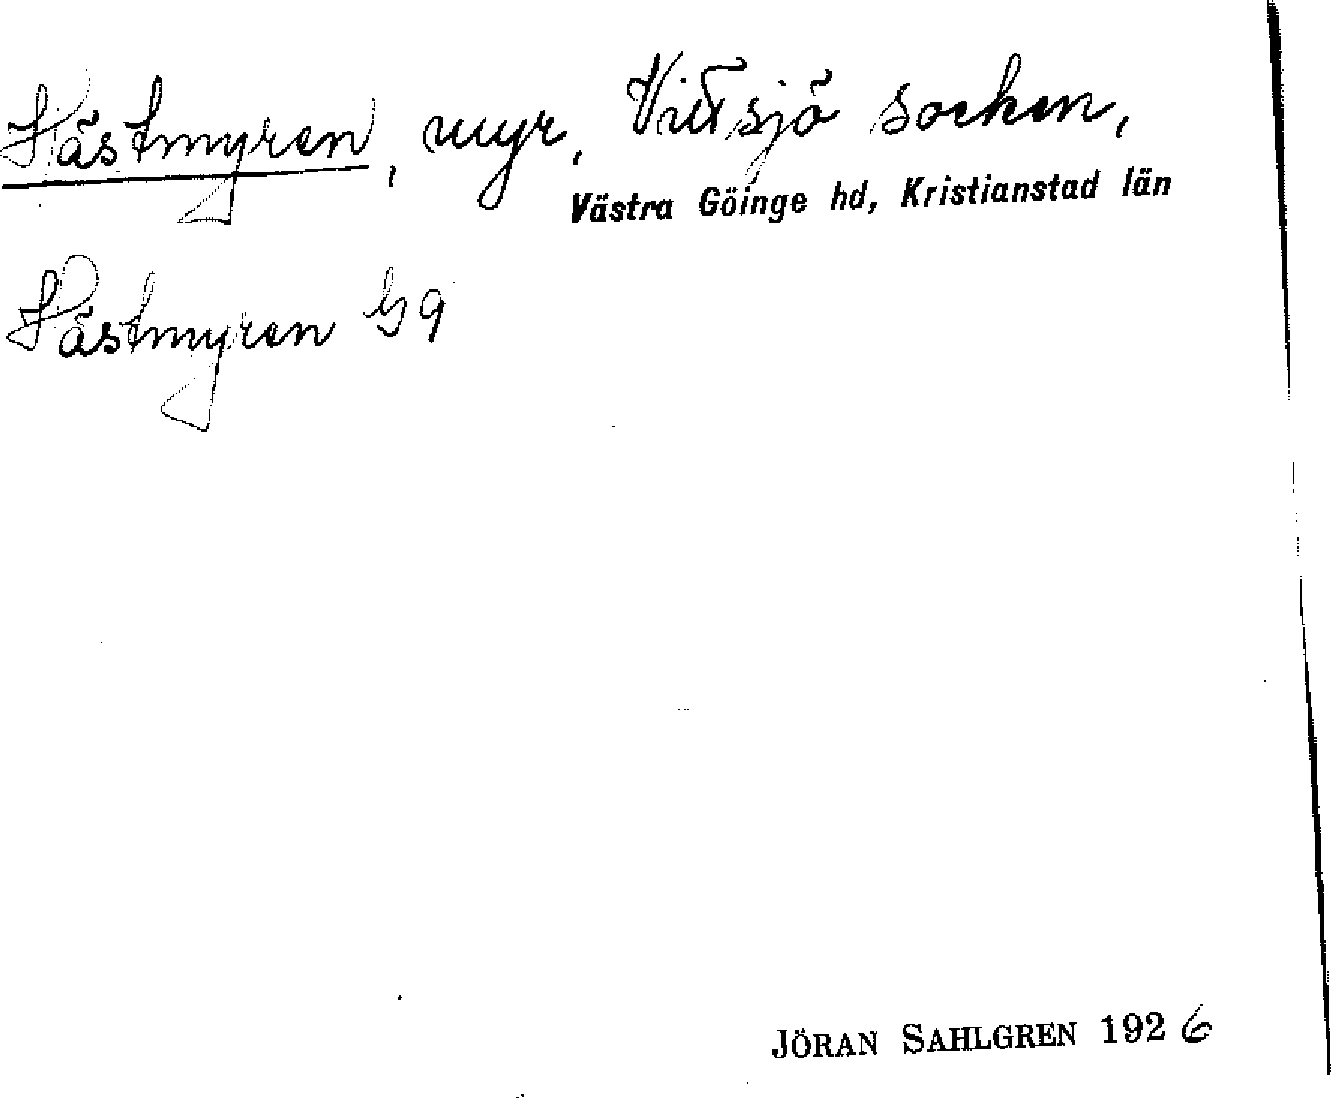 Hästmyren, myr, Vittsjö socken,
Västra Göinge hd, Kristianstad län
Hästmyren G9
JÖRAN SAHLGREN 1926